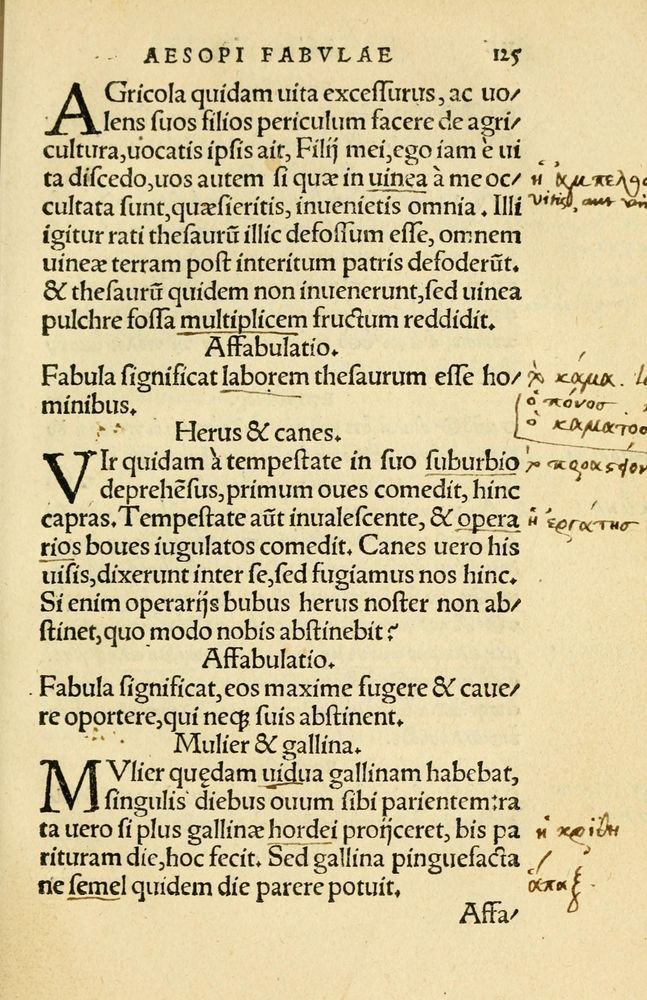 AESOPI FABVLAE 125
AGricola quidam uita excessurus, ac uo/
lens suos filios periculum facere de agri/
cultura, uocatis ipsis ait, Filij mei, ego iam è ui
ta discedo, uos autem si quæ in uinea à me oc/
ἡ ἄμπελος
cultata sunt, quæsieritis, inuenietis omnia. Illi
vitis, aut
igitur rati thesaurū illic defossum esse, omnem
uineæ terram post interitum patris defoderūt.
& thesaurū quidem non inuenerunt, sed uinea
pulchre fossa multiplicem fructum reddidit.
Affabulatio.
Fabula significat laborem thesaurum esse ho/
κάμα.
minibus.
ὁ πόνοσ
ὁ κάματοσ
Herus & canes.
VIr quidam à tempestate in suo suburbio
deprehēsus, primum oues comedit, hinc
capras. Tempestate aūt inualescente, & opera
ἡ ἐργάτησ
rios boues iugulatos comedit. Canes uero his
uisis, dixerunt inter se, sed fugiamus nos hinc.
Si enim operarijs bubus herus noster non ab/
stinet, quo modo nobis abstinebit?
Affabulatio.
Fabula significat, eos maxime fugere & caue/
re oportere, qui neq; suis abstinent.
Mulier & gallina.
MVlier quędam uidua gallinam habebat,
singulis diebus ouum sibi parientem: ra
ta uero si plus gallinæ hordei proijceret, bis pa
ἡ κριθὴ
rituram die, hoc fecit. Sed gallina pinguefacta
ne semel quidem die parere potuit.
ἅπαξ
Affa/